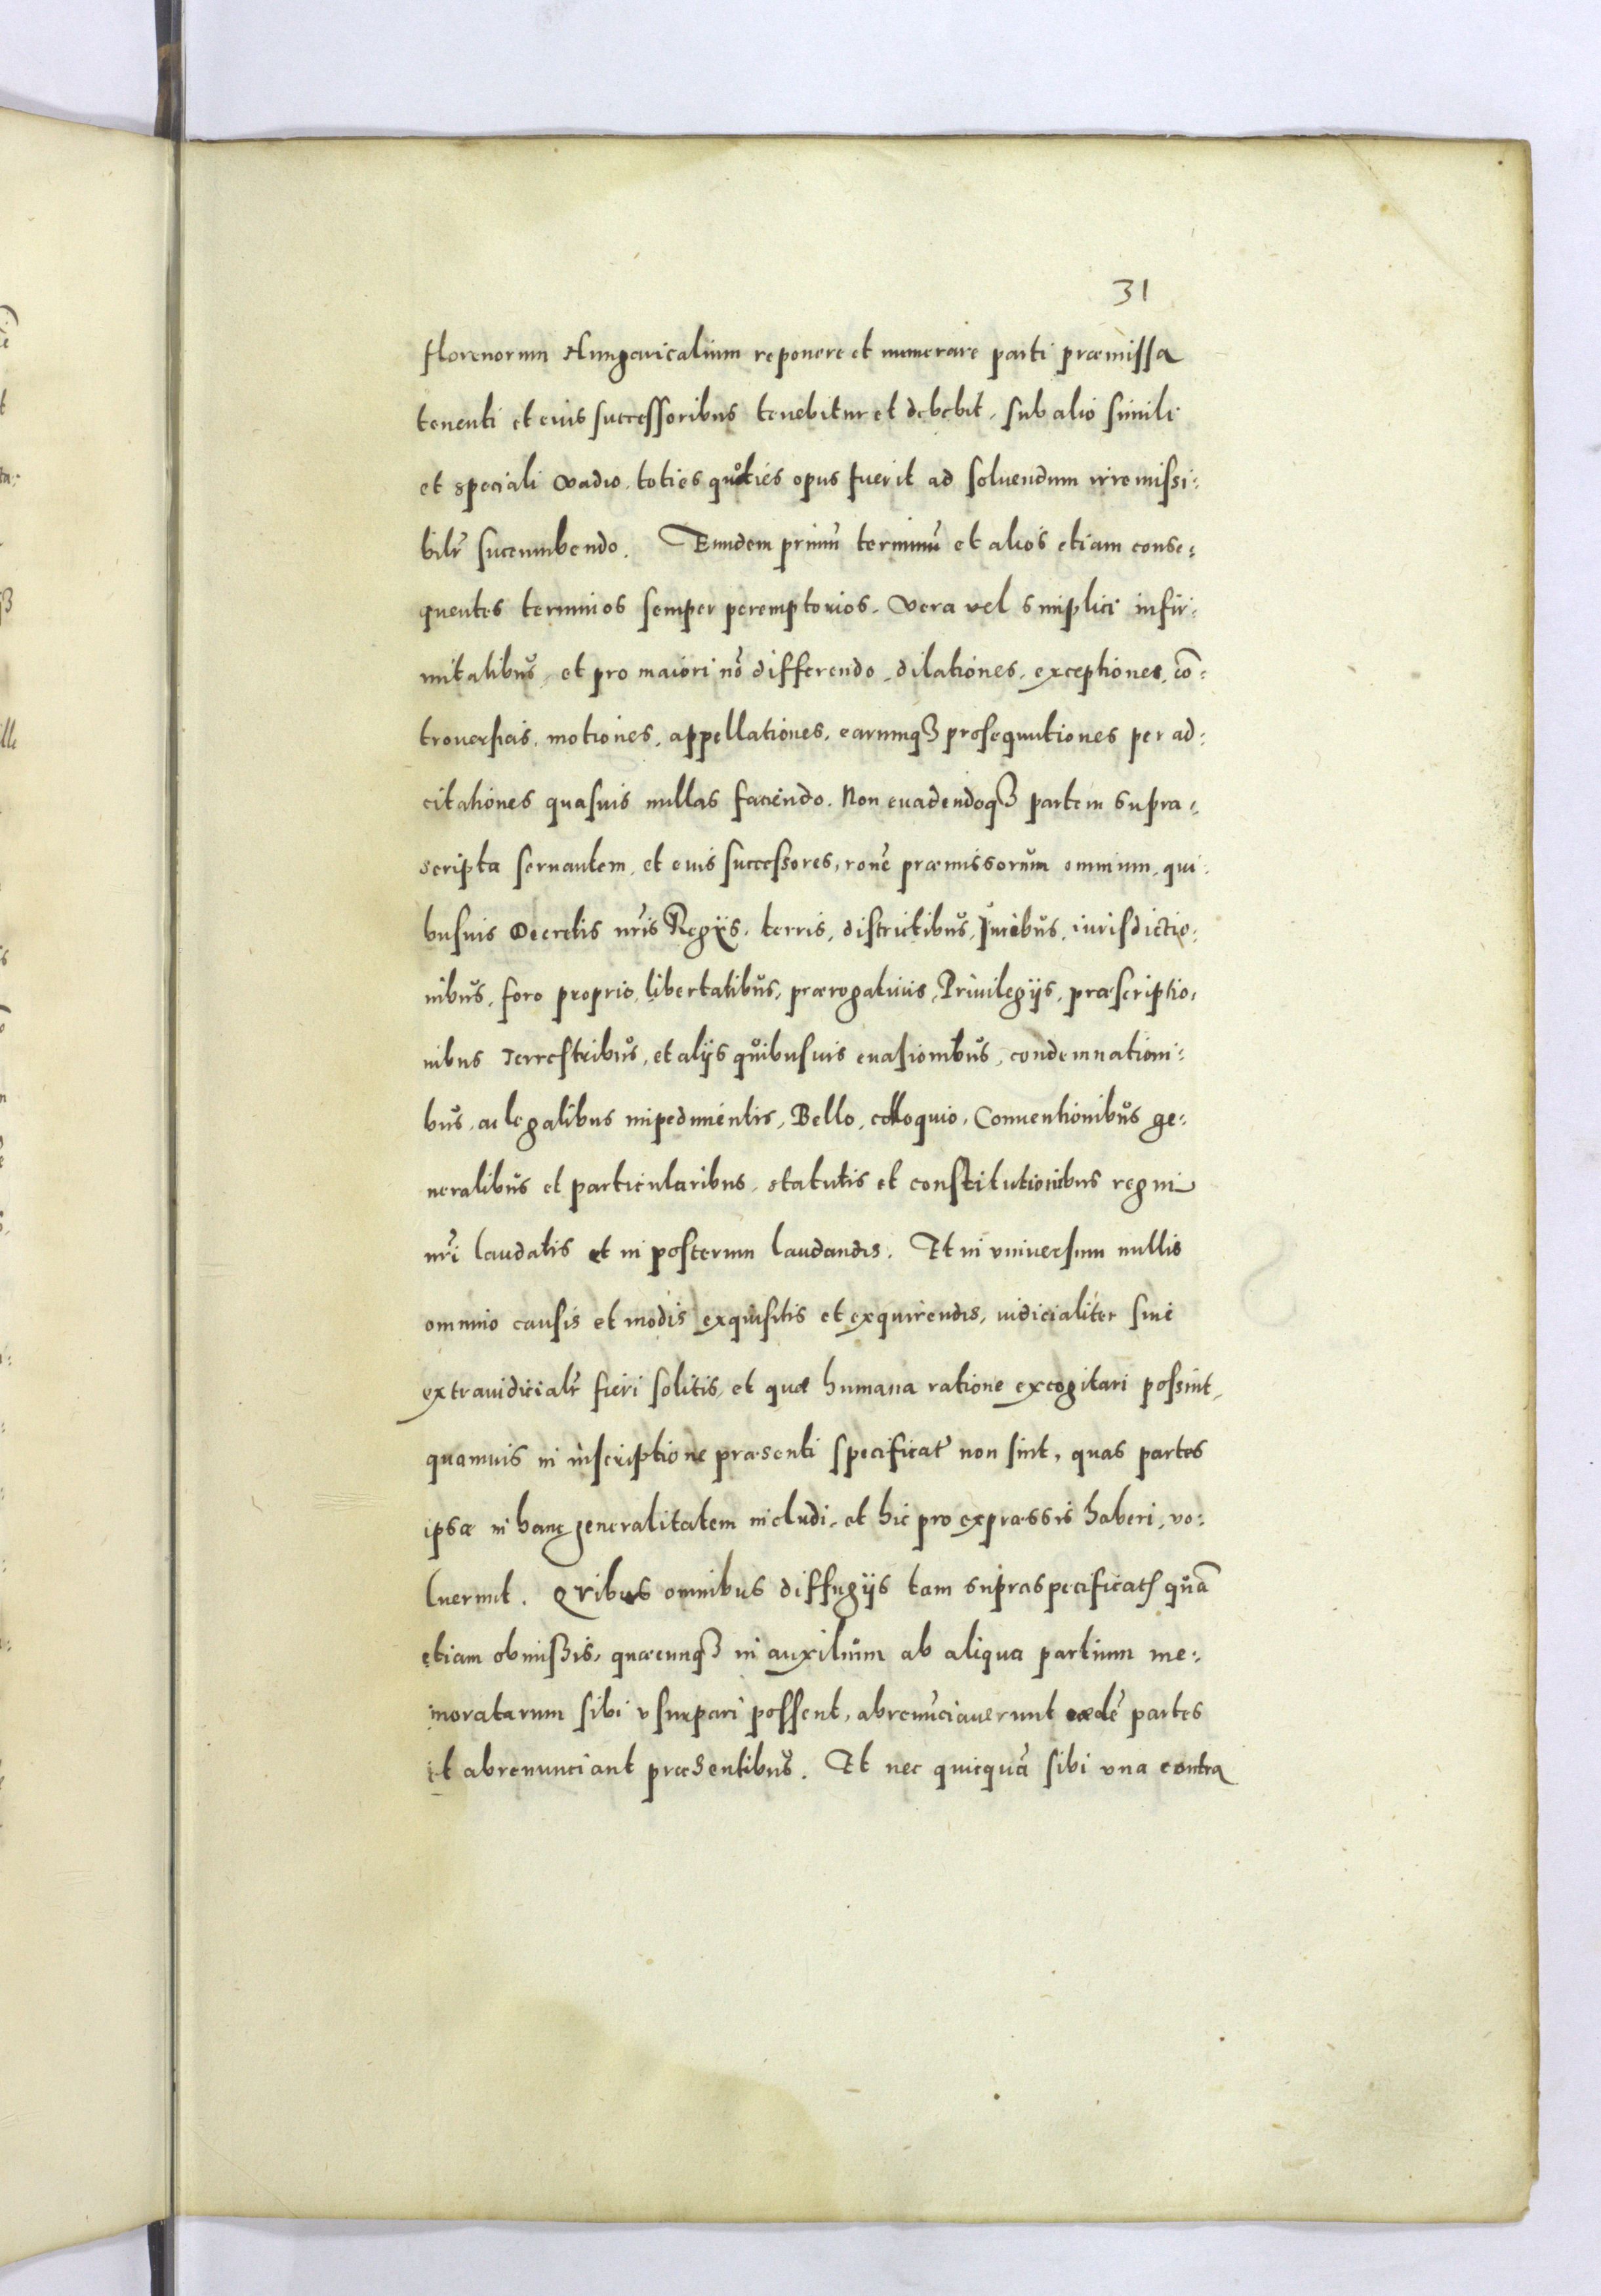 31
florenorum Hungaricalium reponere et numerare parti præmissa
tenenti et eius successoribus tenebitur et debebit, sub alio simili
et speciali vadio, toties quoties opus fuerit ad soluendum irremissi:
bilr̃ sucumbendo. Eundem primũ terminũ et alios etiam conse:
quentes terminos semper peremptorios, vera vel simplici infir:
mitatibus, et pro maiori nõ differendo, dilationes, exceptiones, cõ:
trouersias, motiones, appellationes, earumqꝫ prosequutiones per ad:
citationes quasuis nullas faciendo. Non euadendoqꝫ partem supra:
scripta seruantem, et eius successores, ronẽ præmissorum omnium, qui:
busuis Decretis nr̃is Regijs, terris, districtibus, Juribus, iurisdictio:
nibus, foro proprio, libertatibus, prærogatiuis, Priuilegijs, præscriptio:
nibus Terrestribus, et alijs quibusuis euasionibus, condemnationi:
bus, ac legalibus impedimentis, Bello, colloquio, Conuentionibus ge:
neralibus et particularibus, statutis et constitutionibus regni
nr̃i laudatis et in posterum laudandis. Et in vniuersum nullis
omnino causis et modis exquisitis et exquirendis, iudicialiter siue
extraiudicialr̃ fieri solitis, et quæ humana ratione excogitari possint,
quamuis in inscriptione præsenti specificat̃ non sint, quas partes
ipsæ in hanc generalitatem includi, et hic pro expræssis haberi, vo:
luerunt. Qribus omnibus diffugijs tam supraspecificat̃ quã
etiam obmissis, quæcunqꝫ in auxilium ab aliqua partium me:
moratarum sibi vsurpari possent, abrenũciauerunt eædẽ partes
et abrenunciant præsentibus. Et nec quicquã sibi vna contra